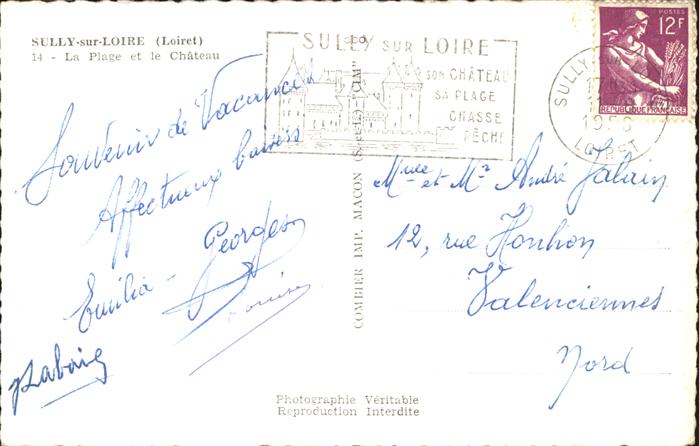 SULLY-sur-LOIRE (Loiret)
14 - La Plage et le Château
Souvenir de Vacances
Affectueux baisers
Emilia - Georges
Louise
COMBIER IMP. MACON (S.-et-L.) "CIM"
SULLY SUR LOIRE
SON CHÂTEAU
SA PLAGE
CHASSE
PÊCHE
POSTES
12F
REPUBLIQUE FRANÇAISE
SULLY-SUR-
LOIRET
Mme et Mr André Jalain
12, rue
Valenciennes
Nord
Photographie Véritable
Reproduction Interdite